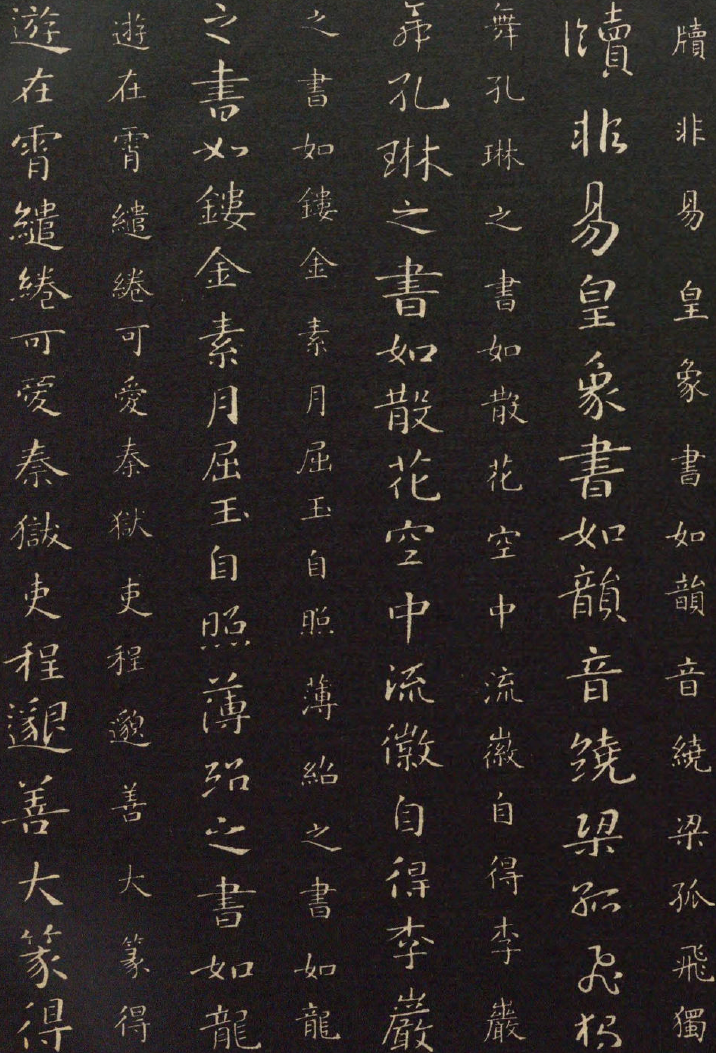 牘非易皇象書如韻音繞梁孤飛獨
牘非易皇象書如韻音繞梁孤飛獨
舞孔琳之書如散花空中流徽自得李巖
舞孔琳之書如散花空中流徽自得李巖
之書如鏤金素月屈玉自照薄紹之書如龍
之書如鏤金素月屈玉自照薄紹之書如龍
遊在霄繾綣可愛秦獄吏程邈善大篆得
遊在霄繾綣可愛秦獄吏程邈善大篆得